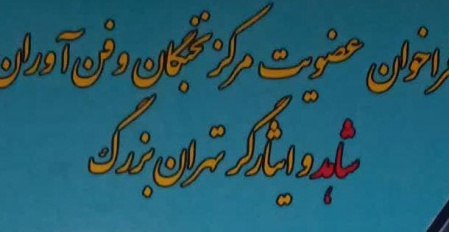 فراخوان عضویت مرکز نخبگان و فن آوران
شاهد و ایثارگر تهران بزرگ